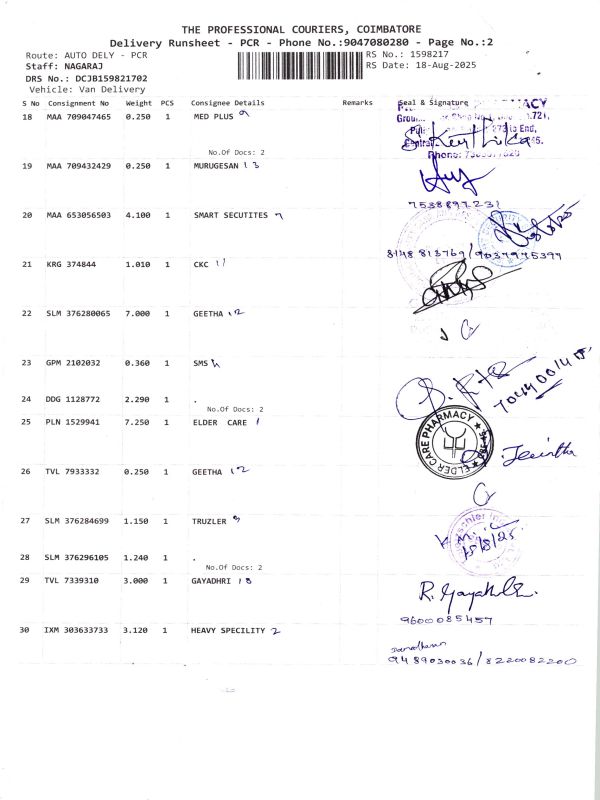 THE PROFESSIONAL COURIERS, COIMBATORE
Delivery Runsheet - PCR - Phone No.:9047080280 - Page No.:2
Route: AUTO DELY - PCR RS No.: 1598217
Staff: NAGARAJ RS Date: 18-Aug-2025
DRS No.: DCJB159821702
Vehicle: Van Delivery
S No Consignment No Weight PCS Consignee Details Remarks Seal & Signature
18 MAA 709047465 0.250 1 MED PLUS
No.Of Docs: 2
19 MAA 709432429 0.250 1 MURUGESAN 13
7538897231
20 MAA 653056503 4.100 1 SMART SECUTITES
8148 813769/9037975397
21 KRG 374844 1.010 1 CKC 11
22 SLM 376280065 7.000 1 GEETHA 12
23 GPM 2102032 0.360 1 SMS
24 DDG 1128772 2.290 1 .
No.Of Docs: 2
25 PLN 1529941 7.250 1 ELDER CARE 1
ELDER CARE PHARMACY
26 TVL 7933332 0.250 1 GEETHA 12
27 SLM 376284699 1.150 1 TRUZLER 9
28 SLM 376296105 1.240 1 .
No.Of Docs: 2
29 TVL 7339310 3.000 1 GAYADHRI 18
9600085457
30 IXM 303633733 3.120 1 HEAVY SPECILITY 2
9489030036/8220082200